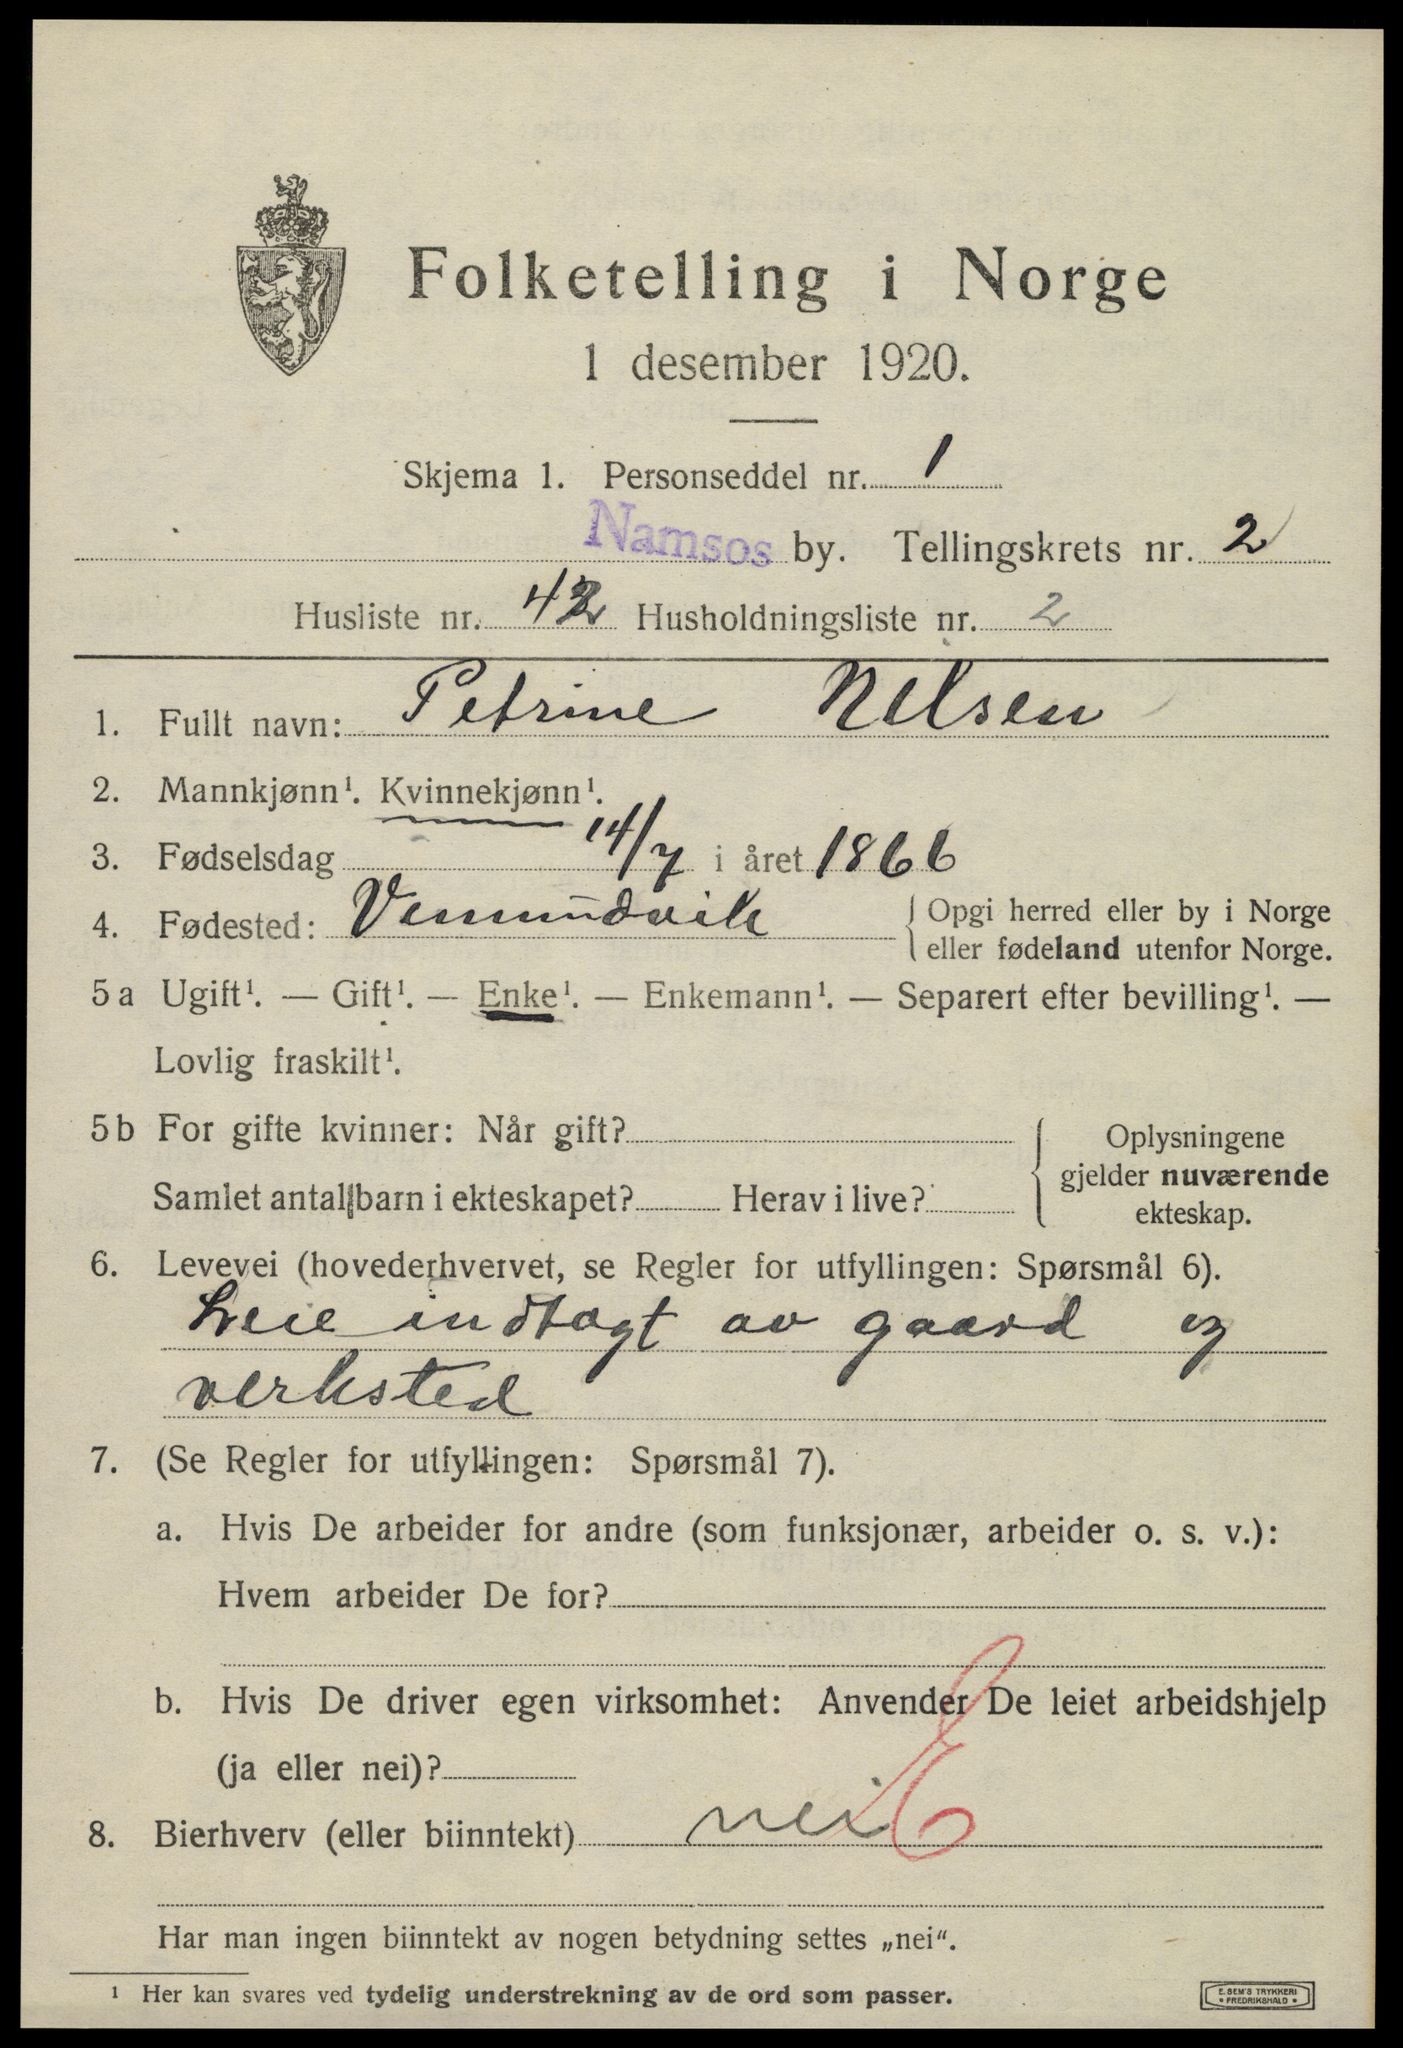 Folketelling i Norge
1 desember 1920.
Skjema 1. Personseddel nr. 1
Namsos by. Tellingskrets nr. 2
Husliste nr. 42 Husholdningsliste nr. 2
1. Fullt navn: Petrine Nilsen
2. Mannkjønn¹. Kvinnekjønn¹.
3. Fødselsdag 14/7 i året 1866
4. Fødested: Vemundvik { Opgi herred eller by i Norge
eller fødeland utenfor Norge.
5a Ugift¹. — Gift¹. — Enke¹. — Enkemann¹. — Separert efter bevilling¹. —
Lovlig fraskilt¹.
5b For gifte kvinner: Når gift?
Samlet antall barn i ekteskapet? Herav i live?
Oplysningene
gjelder nuværende
ekteskap.
6. Levevei (hovederhvervet, se Regler for utfyllingen: Spørsmål 6).
Leie indtægt av gaard og
verksted
7. (Se Regler for utfyllingen: Spørsmål 7).
a. Hvis De arbeider for andre (som funksjonær, arbeider o. s. v.):
Hvem arbeider De for?
b. Hvis De driver egen virksomhet: Anvender De leiet arbeidshjelp
(ja eller nei)?
E
8. Bierhverv (eller biinntekt) nei
Har man ingen biinntekt av nogen betydning settes „nei“.
¹ Her kan svares ved tydelig understrekning av de ord som passer.
E. SEM'S TRYKKERI
• FREDRIKSHALD •